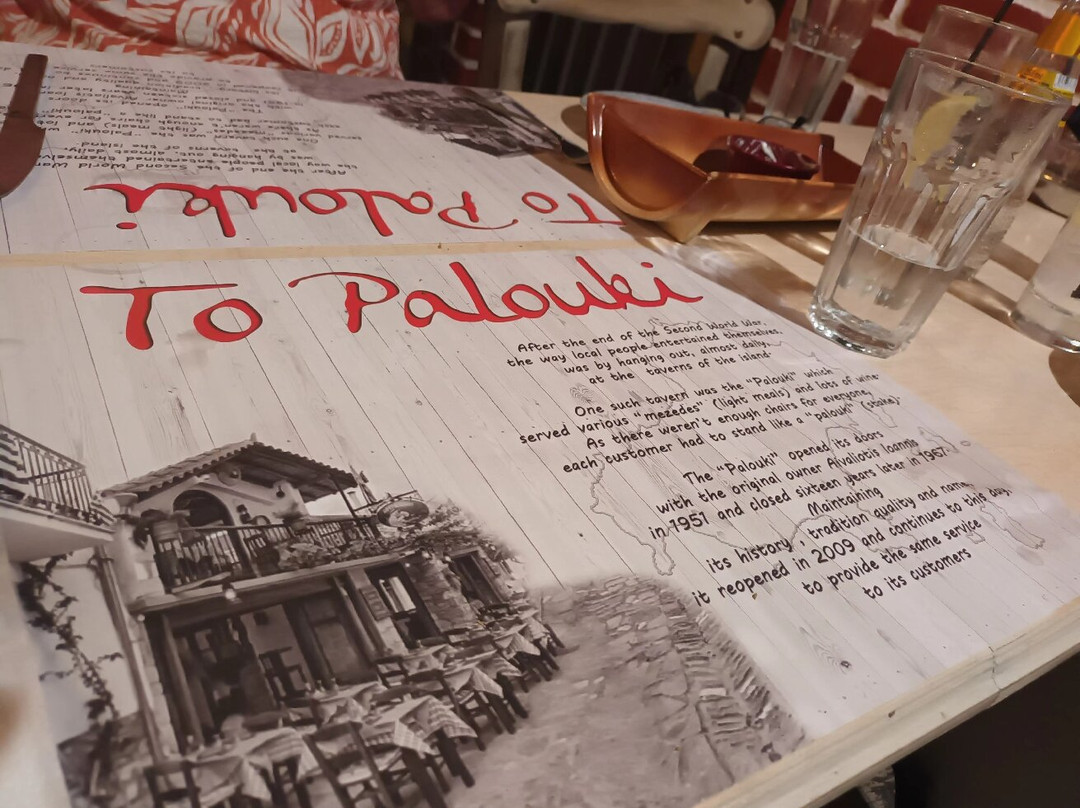 To Palouki
After the end of the Second World War,
the way local people entertained themselves,
was by hanging out, almost daily,
at the taverns of the island.
One such tavern was the "Palouki" which
served various "mezedes" (light meals) and lots of wine.
As there weren't enough chairs for everyone,
each customer had to stand like a "palouki" (stake).
The "Palouki" opened its doors
with the original owner Aivaliotis Ioannis
in 1951 and closed sixteen years later in 1967.
Maintaining
its history, tradition quality and name,
it reopened in 2009 and continues to this day,
to provide the same service
to its customers
To Palouki
After the end of the Second World War
the way local people entertained themselves
was by hanging out, almost daily,
at the taverns of the island